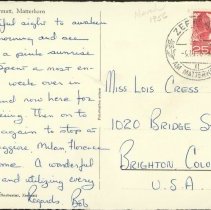 rmatt, Matterhorn
March 1956
tiful sight to awaken
morning and see
a pink sunrise
Spent a most en-
week over in
and now here for
iing. Then on to
again to stop at
ggiore, Milan, Florence
ome. A wonderful
and utilizing every
Regards, Bob
ZER
25
AM MATTERHORN
MISS LOIS CRESS
1020 BRIDGE S
BRIGHTON COLO
U.S.A.